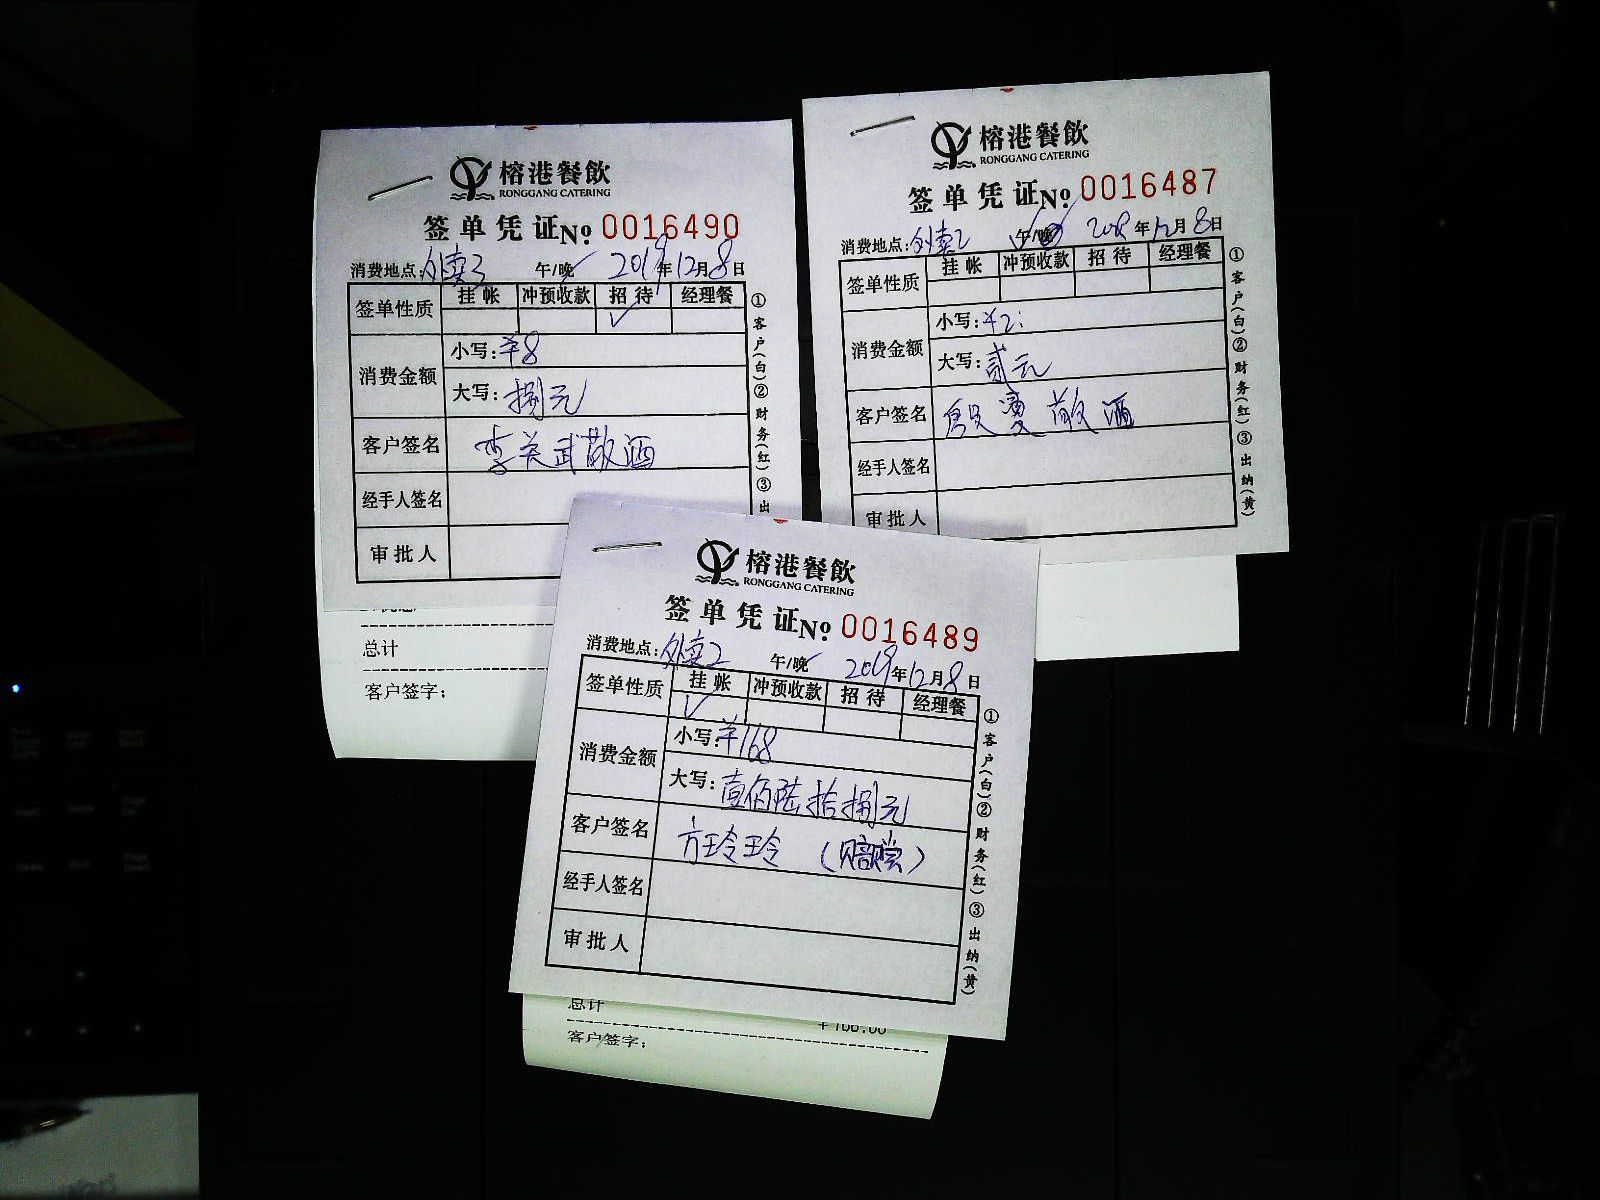 榕港餐飲
RONGGANG CATERING
签单凭证№ 0016490
消费地点:外卖3 午/晚 2019年12月8日
签单性质 挂帐 冲预收款 招待 经理餐
✓
消费金额 小写:¥8
大写:捌元
客户签名 李关武散酒
经手人签名
审批人
①客户(白)②财务(红)③出
总计
客户签字:
榕港餐飲
RONGGANG CATERING
签单凭证№ 0016487
消费地点:外卖2 午/晚 2019年12月8日
签单性质 挂帐 冲预收款 招待 经理餐
消费金额 小写:¥2
大写:贰元
客户签名 散酒
经手人签名
审批人
①客户(白)②财务(红)③出纳(黄)
榕港餐飲
RONGGANG CATERING
签单凭证№ 0016489
消费地点:外卖2 午/晚 2019年12月8日
签单性质 挂帐 冲预收款 招待 经理餐
✓
消费金额 小写:¥168
大写:壹佰陆拾捌元
客户签名 方玲玲 (赔偿)
经手人签名
审批人
①客户(白)②财务(红)③出纳(黄)
总计 ¥168.00
客户签字: